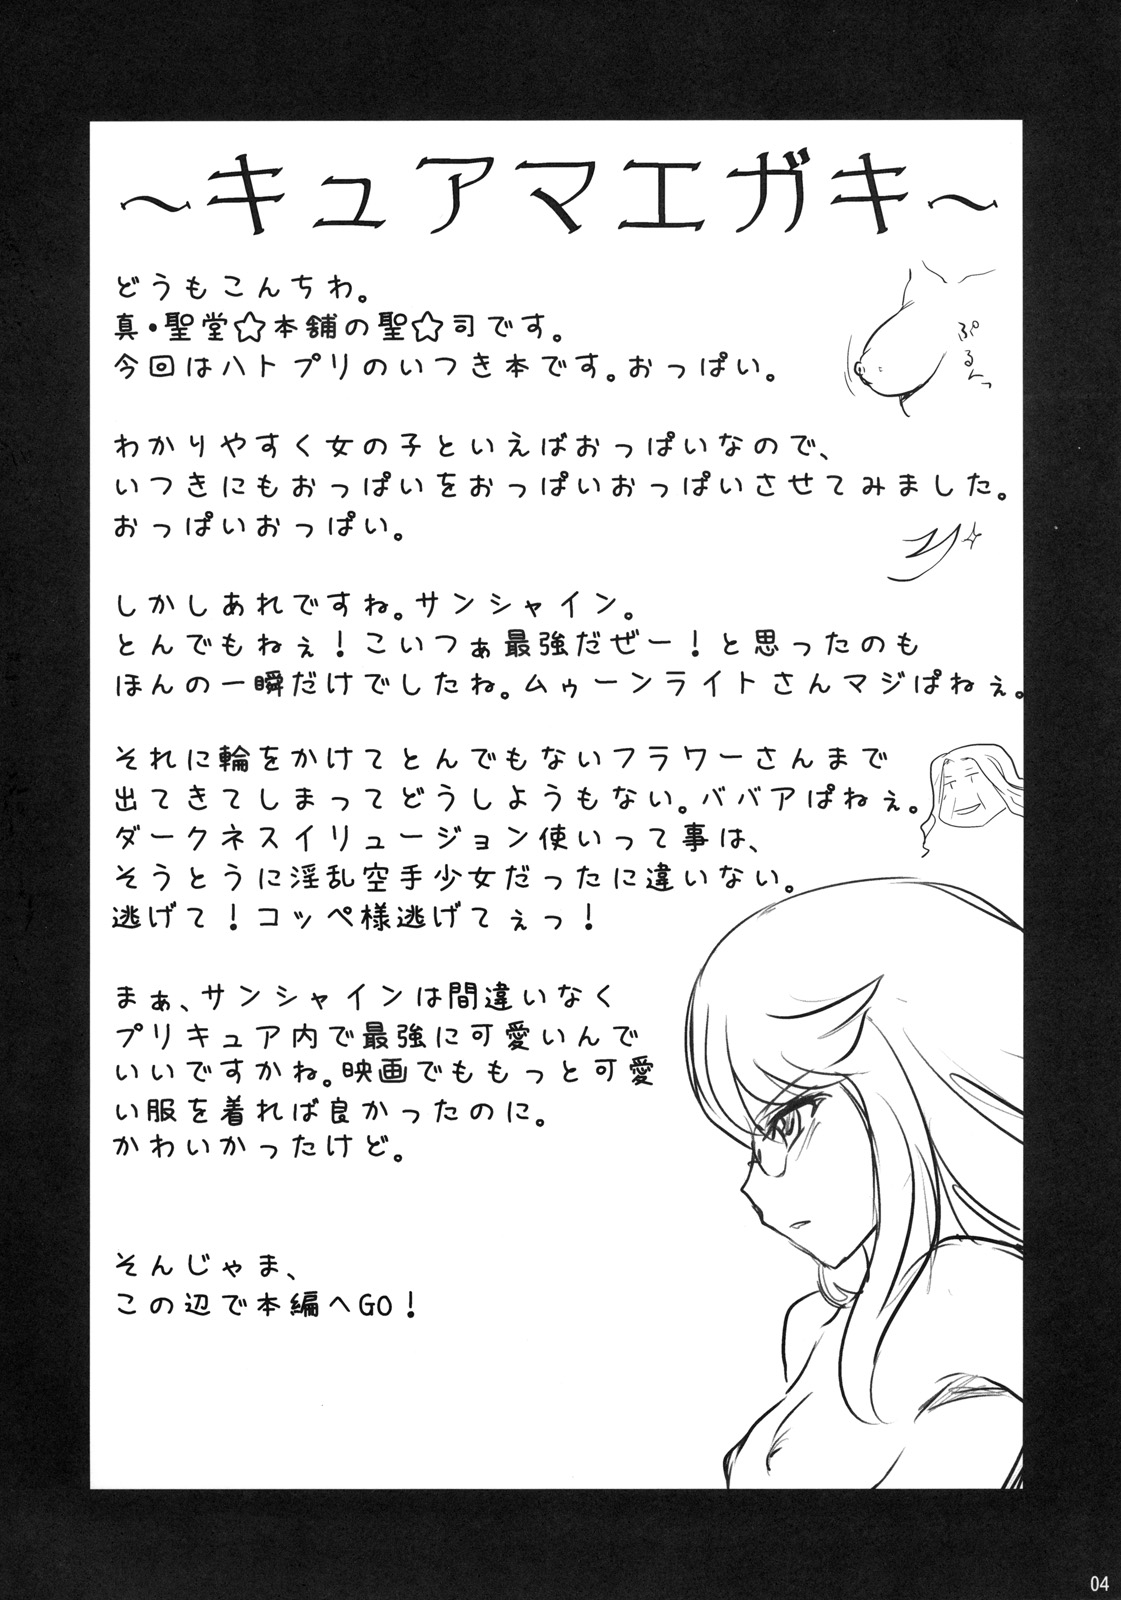 ～キュアマエガキ～
どうもこんちわ。
真・聖堂☆本舗の聖☆司です。
今回はハトプリのいつき本です。おっぱい。
ぷるんっ
わかりやすく女の子といえばおっぱいなので、
いつきにもおっぱいをおっぱいおっぱいさせてみました。
おっぱいおっぱい。
しかしあれですね。サンシャイン。
とんでもねぇ！こいつぁ最強だぜー！と思ったのも
ほんの一瞬だけでしたね。ムゥーンライトさんマジぱねぇ。
それに輪をかけてとんでもないフラワーさんまで
出てきてしまってどうしようもない。ババアぱねぇ。
ダークネスイリュージョン使いって事は、
そうとうに淫乱空手少女だったに違いない。
逃げて！コッペ様逃げてぇっ！
まぁ、サンシャインは間違いなく
プリキュア内で最強に可愛いんで
いいですかね。映画でももっと可愛
い服を着れば良かったのに。
かわいかったけど。
そんじゃま、
この辺で本編へGO！
04